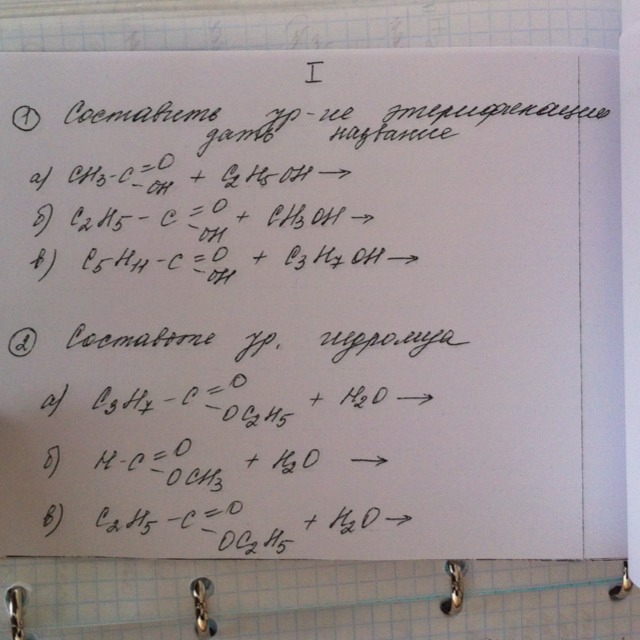 I
① Составить ур-ие этерификации
дать название
а) CH3-C=O-OH + C2H5OH →
б) C2H5-C=O-OH + CH3OH →
в) C5H11-C=O-OH + C3H7OH →
② Составьте ур. гидролиза
а) C3H7-C=O-OC2H5 + H2O →
б) H-C=O-OCH3 + H2O →
в) C2H5-C=O-OC2H5 + H2O →